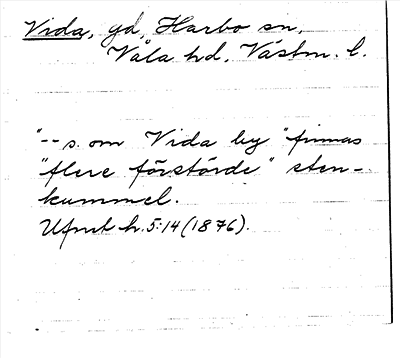 Vida, gd, Harbo sn,
Våla hd, Västm. l.
"-- s. om Vida by "finnas
"flere förstörde" sten-
kummel.
Ufmt h. 5:14 (1876).